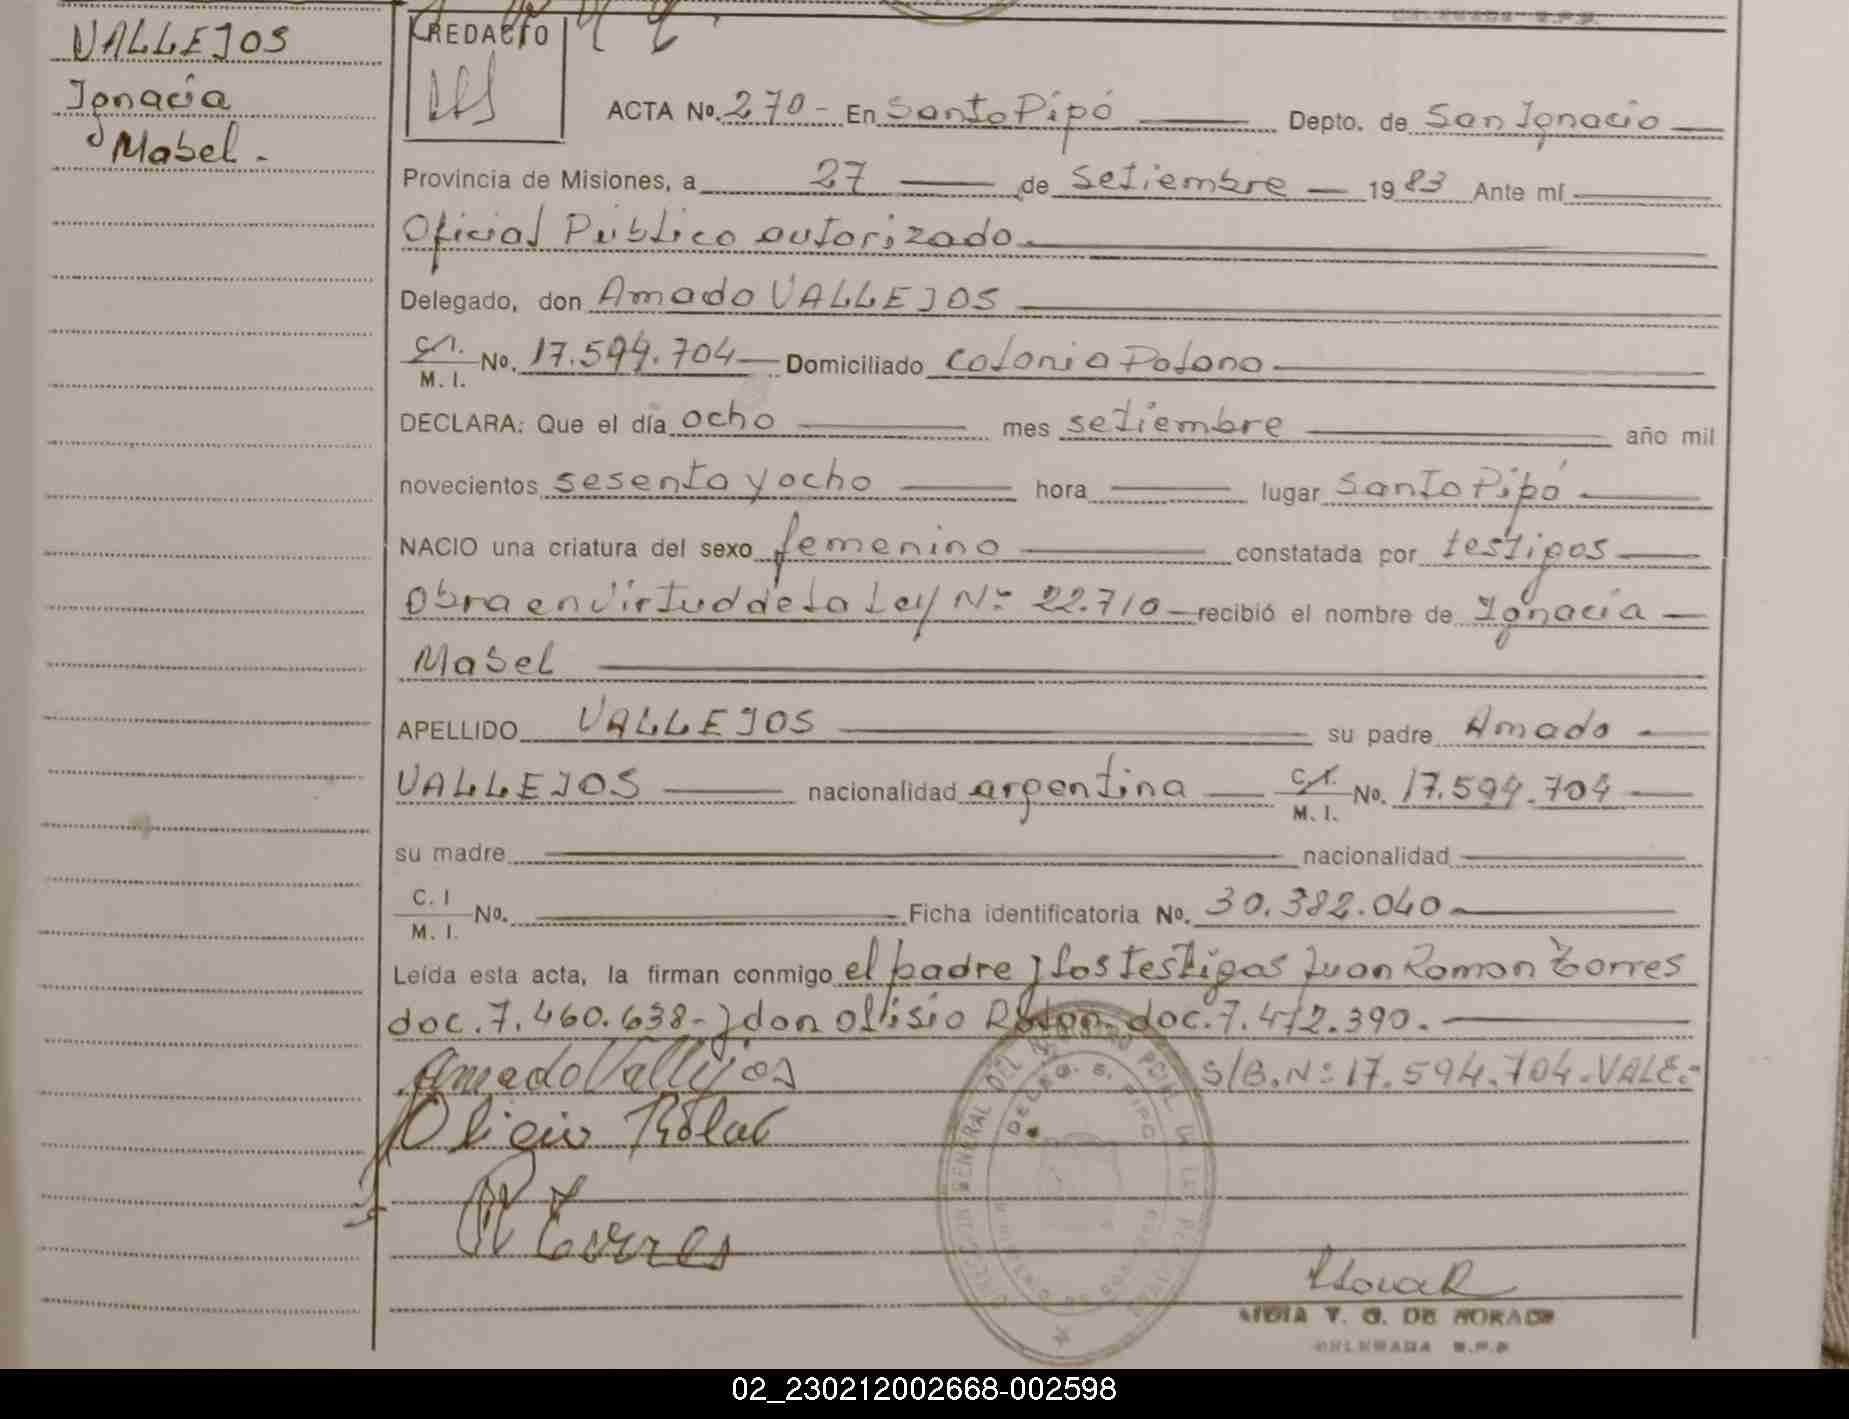 VALLEJOS
Ignacia
Mabel.-
REDACTO
ACTA Nº. 270- En Santo Pipó Depto. de San Ignacio
Provincia de Misiones, a 27 de Setiembre 1983 Ante mí
Oficial Público autorizado
Delegado, don Amado VALLEJOS
C.I. M. I. Nº. 17.594.704 Domiciliado Colonia Polana
DECLARA: Que el día ocho mes setiembre año mil
novecientos sesenta y ocho hora lugar Santo Pipó
NACIO una criatura del sexo femenino constatada por testigos
Obra en virtud de la Ley Nº 22.710 recibió el nombre de Ignacia
Mabel
APELLIDO VALLEJOS su padre Amado
VALLEJOS nacionalidad argentina C.I. M. I. Nº. 17.594.704
su madre nacionalidad
C. I M. I. Nº. Ficha identificatoria Nº. 30.382.040
Leída esta acta, la firman conmigo el padre y los testigos Juan Roman Torres
doc. 7.460.638.- y don Olisio doc. 7.472.390.
Amado Vallejos S/B.Nº 17.594.704.VALE.-
R Torres
V. G. DE
DELEGADA
02_230212002668-002598